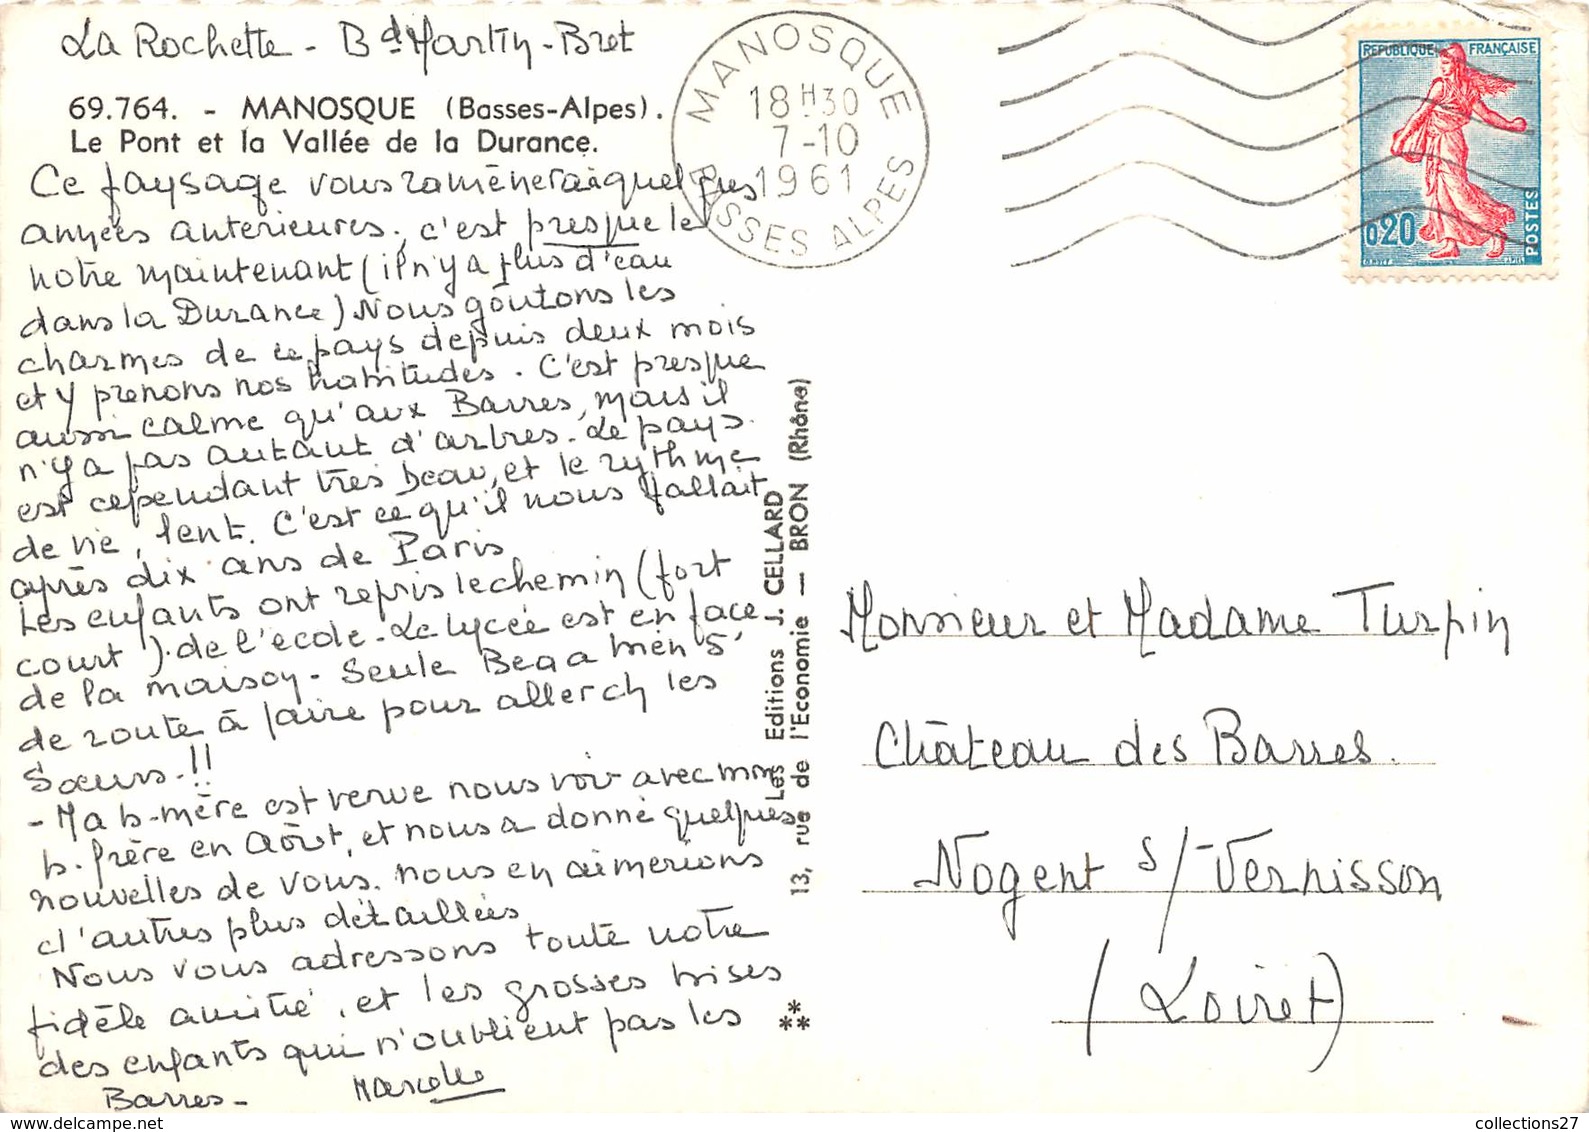 La Rochette - Bd Martin-Bret
69.764. - MANOSQUE (Basses-Alpes).
Le Pont et la Vallée de la Durance.
Ce paysage vous ramènera à quelques
années antérieures, c'est presque le
notre maintenant (il n'y a plus d'eau
dans la Durance) Nous goûtons les
charmes de ce pays depuis deux mois
et y prenons nos habitudes. C'est presque
aussi calme qu'aux Barres, mais il
n'y a pas autant d'arbres. Le pays
est cependant très beau, et le rythme
de vie, lent. C'est ce qu'il nous fallait
après dix ans de Paris
Les enfants ont repris le chemin (fort
court). de l'école. Le lycée est en face
de la maison. Seule Bea a bien 5'
de route à faire pour aller ch les
Sœurs. !!
- Ma b-mère est venue nous voir avec mon
b. frère en Août, et nous a donné quelques
nouvelles de vous. nous en aimerions
d'autres plus détaillées
Nous vous adressons toute notre
fidèle amitié, et les grosses bises
des enfants qui n'oublient pas les
Barres-
MANOSQUE
18H30
7-10
1961
BASSES ALPES
REPUBLIQUE FRANÇAISE
0,20
POSTES
Les Editions J. CELLARD
13, rue de l'Economie — BRON (Rhône)
Monsieur et Madame Turpin
Château des Barres.
Nogent s/-Vernisson
(Loiret)
collections27